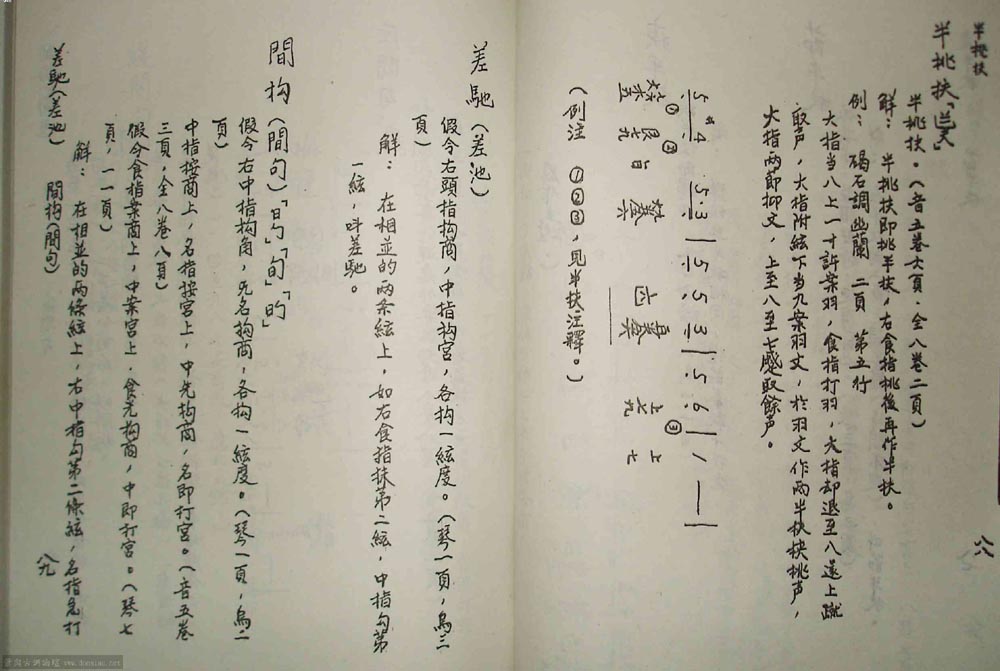 半挑扶
半挑扶
半挑扶。(音五卷六頁·全八卷二頁)
解： 半挑扶即挑半扶，右食指挑後再作半扶。
例： 碣石調幽蘭 二頁 第五行
大指当八上一寸許案羽，食指打羽，大指却退至八遂上蹴
取声，大指附絃下当九案羽文，於羽文作兩半扶挾挑声，
大指两節抑文，上至八至七慼取餘声。
5 4 5 3 | 5 5 3 | 5 6 | 1 — |
(例注 ①②③，見半扶注釋。)
八八
差馳(差池)
假令右頭指构商，中指构宮，各构一絃度。(琴一頁，烏三
頁)
解： 在相並的两条絃上，如右食指抹第二絃，中指勾第
一絃，叫差馳。
間构(間句)
假令右中指构角，無名构商，各构一絃度。(琴一頁，烏二
頁)
中指按商上，名指按宮上，中先构商，名即打宮。(音五卷
三頁，全八卷八頁)
假令食指案商上，中案宮上·食先构商，中即打宮。(琴七
頁，一一頁)
解： 在相並的两條絃上，右中指勾第二條絃，名指急打
差馳(差池) 間构(間句)
八九
www.donxiao.net